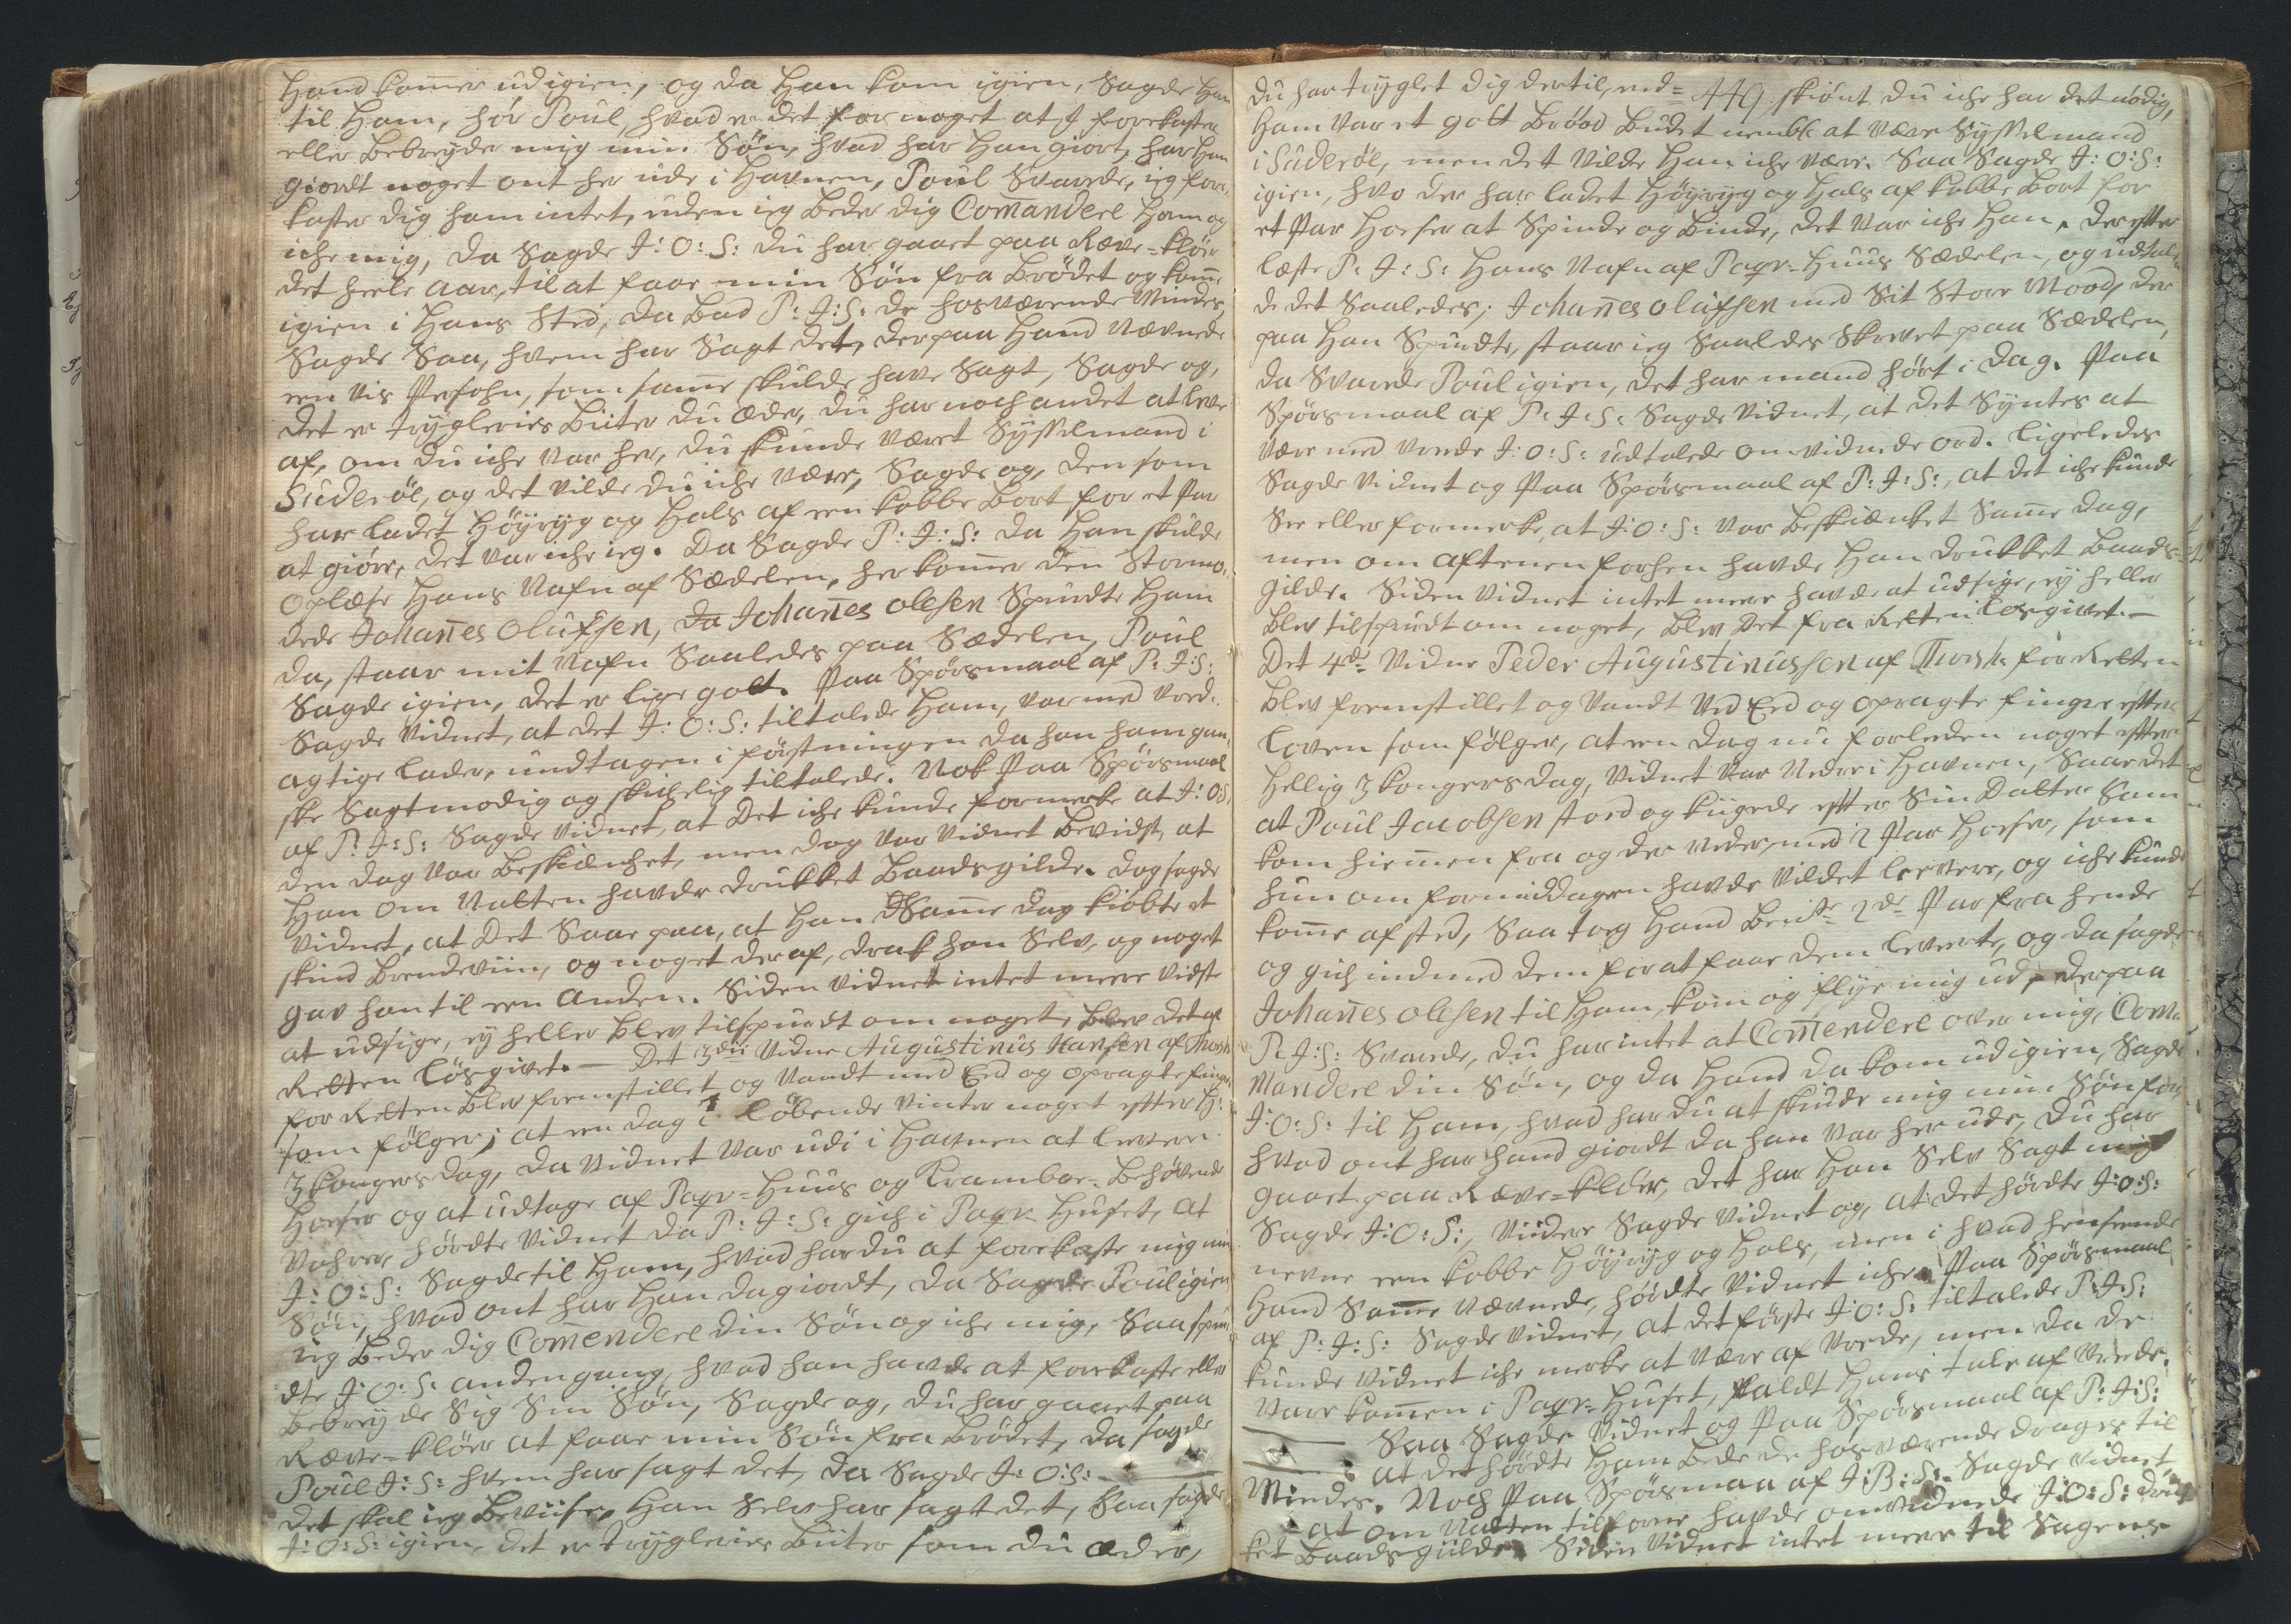 Hand kom̄er ud igien, og da Han kom igien, Sagde Han
til Ham, hør Poul, hvad er det for noget at I forekaster
eller Bebreyder mig min Søn, hvad har Han giort, har Han
giordt noget ont her ude i Havnen, Poul Svarede, ieg fore-
kaster dig ham intet, uden ieg Beder dig Com̄andere Ham og
iche mig, da Sagde J: O: S: du har gaaet paa Ræve-Kløer
det heele Aar, til at faae min Søn fra Brødet og kom̄e
igien i Hans Sted, da Bad P: J: S: de hosværende Mindes,
Sagde Saa, hvem har Sagt det, der paa Hand Nævnede
een vis Persohn, som sam̄e skulde have Sagt, Sagde og,
det er trygleries Biiter du æder, du har noch andet at leve
af, om du iche var her, du kunde været Sysselmand i
Suderöe, og det vilde du iche være, Sagde og, den som
har ladet Höyryg og Hals af een Kobbe Bort for et Par
at giöre, det var iche ieg. Da Sagde P: J: S: da Han skulde
oplæse Hans Nafn af Sædelen, her kom̄er den Stormo-
dede Johan̄es Olufsen, da Johan̄es Olesen Spurdte Ham
da, staar mit Nafn Saaledes paa Sædelen, Poul
Sagde igien, det er lige godt. Paa Spörsmaal af P: J: S:
Sagde Vidnet, at det J: O: S: tiltalede Ham, var med vred-
agtige lader, undtagen i förstningen da han ham gan-
ske Sagtmodig og skichelig tiltalede. Nok Paa Spörsmaal
af P: J: S: Sagde Vidnet, at Det iche kunde formerke at J: O: S:
den dag var Beskiænchet, men dog var Vidnet Bevidst, at
Han om Natten havde drukket Baadsgilde. dog sagde
Vidnet, at Det Saae paa, at Han Sam̄e dag kiöbte et
skind Brendeviin, og noget der af, drak han Selv, og noget
gav han til een Anden. Siden Vidnet intet meere vidste
at udsige, ey heller blev tilspurdt om noget, blev det af
Retten Lösgivet. — Det 3die Vidne Augustinus Hansen af Thorsh:
for Retten blev fremstillet og Vandt med Eed og opragte finger
som fölger; at een dag i löbende Vinter noget efter H:
3 Kongers dag, da Vidnet var udi i Havnen at levere
Hoeser og at udtage af Pagr-Huus og Kramboe-Behövende
Vahrer, hördte Vidnet da P: J: S: gich i Pagr-Huset, at
J: O: S: Sagde til Ham, hvad har du at forekaste mig min
Søn, hvad ont har Han da giordt, da Sagde Poul igien
ieg Beder dig Com̄endere din Søn og iche mig, Saa spur-
dte J: O: S: anden gang, hvad han havde at forekaste eller
Bebreyde Sig Sin Søn, Sagde og, du har gaaet paa
Ræve-Klöer at faae min Søn fra Brödet, da sagde
Poul J: S: hvem har sagt det, da Sagde J: O: S:
det skal ieg Beviise, Han Selv har sagt det, Saa sagde
J: O: S: igien, det er trygleries Biiter som du æder,
du har tryglet dig dertil, end= 449 skiönt du iche har det nödig,
Ham var et gott Bröd Budet nembl: at være Sysselmand
i Suderöe, men det vilde Han iche være. Saa Sagde J: O: S:
igien, hvo der har ladet Höyryg og Hals af Kobbe Bort for
et Par Hoeser at Spinde og Binde, det var iche Han. der efter
læste P: J: S: Hans Nafn af Pagr-Huus Sædelen, og udtal-
de det Saaledes; Johan̄es Olufsen med Sit Store Mood, der
paa Han Spurdte, staar ieg Saaledes Skrevet paa Sædelen,
da Svarede Poul igien, det har mand hört i dag. Paa
Spörsmaal af P: J: S: Sagde Vidnet, at det Syntes at
være med vrede J: O: S: udtalede omvidnede ord. ligeledes
Sagde Vidnet og Paa Spörsmaal af P: J: S:, at det iche kunde
See eller formerke, at J: O: S: var Beskiænket Sam̄e dag,
men om Aftenen forhen havde Han drukket Baads-
gilde. Siden Vidnet intet meere havde at udsige, ey heller
blev tilspurdt om noget, blev Det fra Retten Losgivet.—
Det 4de Vidne Peder Augustinussen af Thorsh: for Retten
blev fremstillet og Vandt ved Eed og opragte finger efter
Loven som fölger, at een dag nu forleden noget efter
Hellig 3 Kongersdag, Vidnet var Neder i Havnen, Saae det
at Poul Jacobsen stoed og kiigede efter Sin Datter Som
kom hiem̄en fra og der neder, med 2 Par Hoeser, som
hun om formiddagen havde vildet levere, og iche kunde
kom̄e afsted, Saa tog Hand bemte 2de Par fra hende
og gich ind med dem for at faae dem leverte, og da sagde
Johan̄es Olesen til Ham, kom og flye mig ud, derpaa
P: J: S: Svarede, du har intet at Com̄endere over mig, Com-
mandere din Søn, og da Hand da kom ud igien, Sagde
J: O: S: til Ham, hvad har du at skiende mig min Søn for,
hvad ont har hand giordt da han var her ude, du har
gaaet paa Ræve-Klöer, det har Han Selv Sagt mig
Sagde J: O: S:, Viidere Sagde Vidnet og, at det hördte J: O: S:
nevne een Kobbe Höyryg og Hals, men i hvad henseende
Hand Sam̄e Nævnede, hördte Vidnet iche. Paa Spörsmaal
af P: J: S: Sagde Vidnet, at det förste J: O: S: tiltalede P: J: S:
kunde Vidnet iche merke at være af Vrede, men da de
vare kom̄en i Pagr-Huset, faldt Hans tale af Vrede.
Saa Sagde Vidnet og Paa Spörsmaal af P: J: S:
at det hördte Ham Bede de hosværende drages til
Mindes. Noch Paa Spörsmaal af J: B: S: Sagde Vidnet
at om Natten tilforne havde omvidnede J: O: S: druk-
ket Baadsgilde. Siden Vidnet intet meere til Sagens